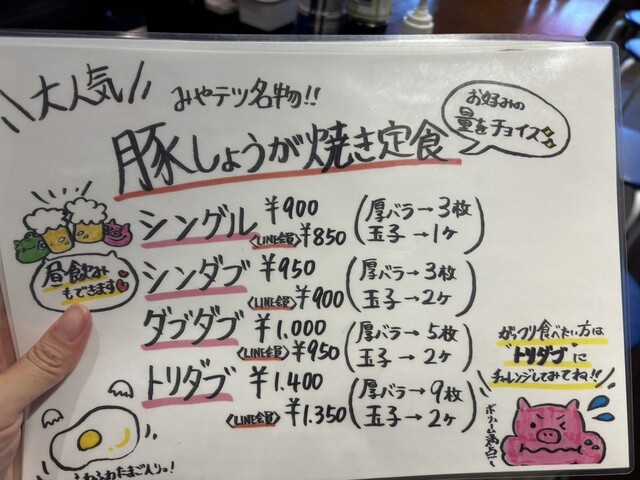 大人気
みやテツ名物!!
お好みの
量をチョイス
豚しょうが焼き定食
シングル ¥900 (厚バラ→3枚
<LINE会員>¥850 玉子→1ヶ)
シンダブ ¥950 (厚バラ→3枚
<LINE会員>¥900 玉子→2ヶ)
ダブダブ ¥1.000 (厚バラ→5枚
<LINE会員>¥950 玉子→2ヶ)
トリダブ ¥1.400 (厚バラ→9枚
<LINE会員>¥1.350 玉子→2ヶ)
昼飲み
もできます
がっつり食べたい方は
"トリダブ"に
チャレンジしてみてね!!
ボリューム満点
ふわふわたまご入りっ!